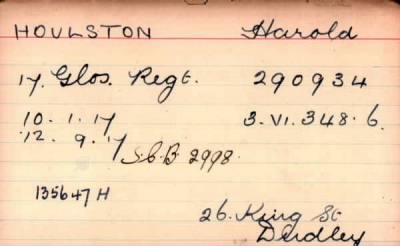 HOULSTON Harold
17. Glos. Regt. 290934
10. 1. 17 3. VI. 348. 6.
12. 9. 17 S.C.B 2998.
135647 H
26. King St
Dudley